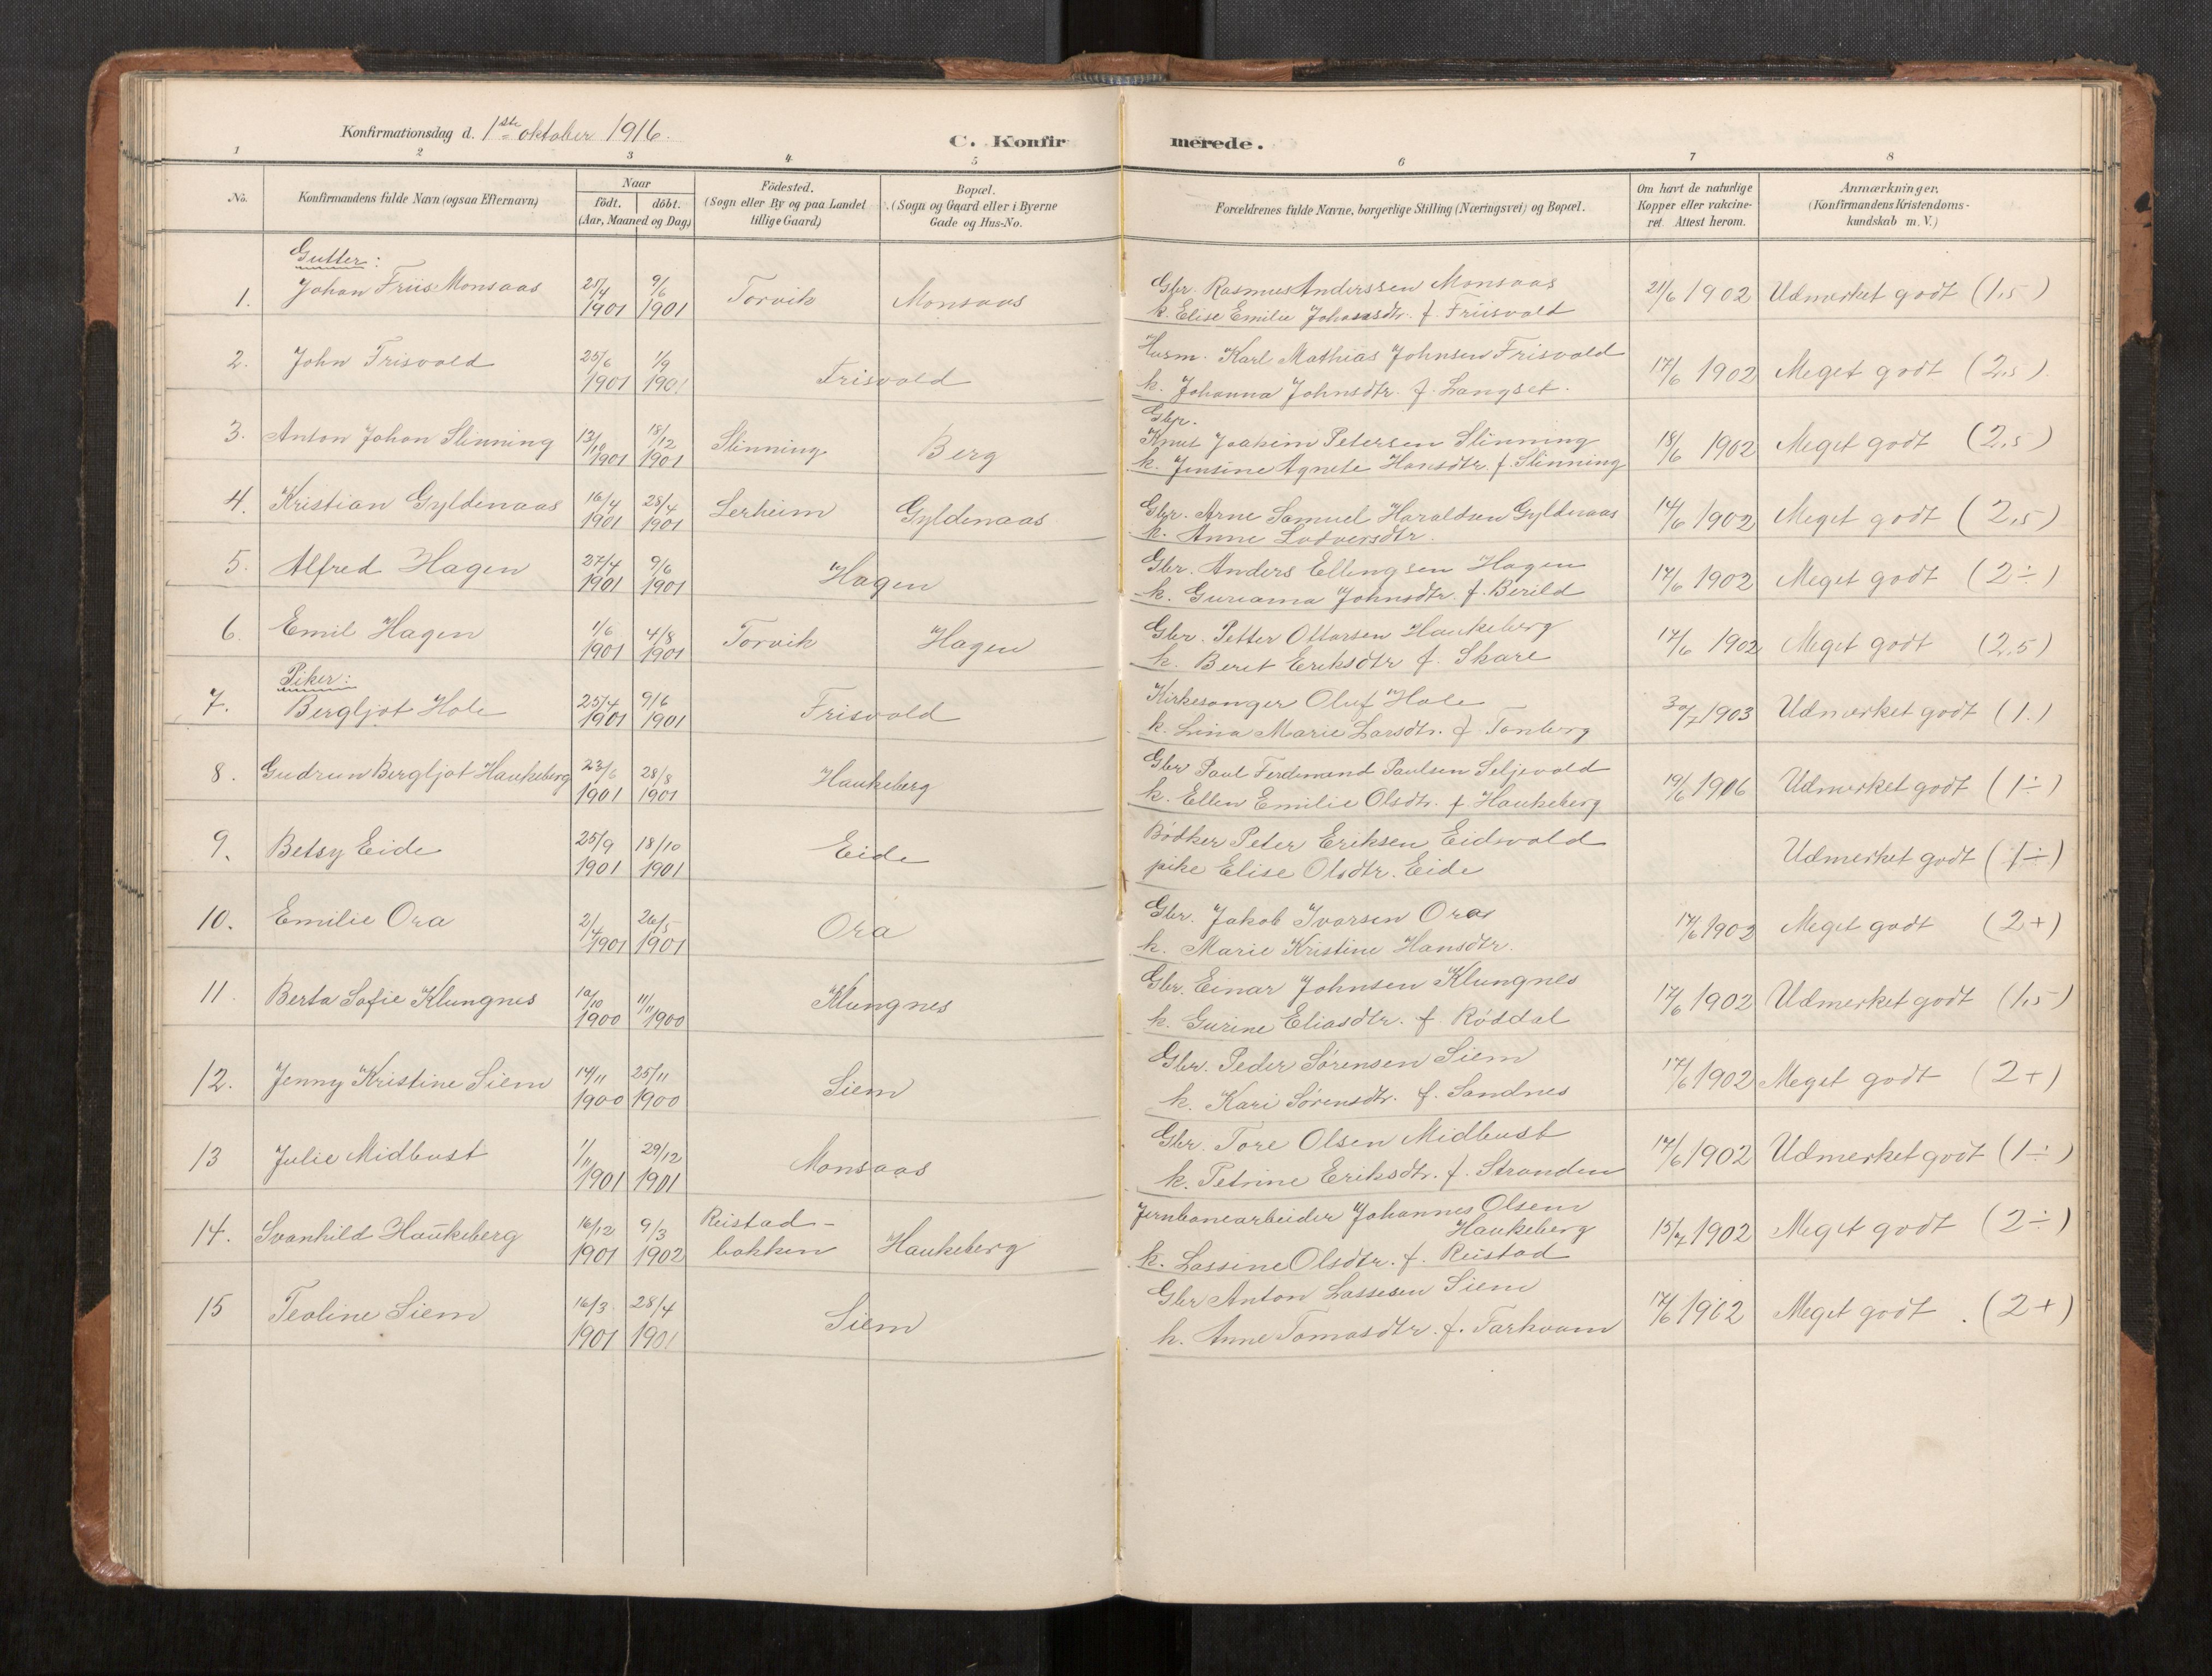 Konfirmationsdag d. 1ste oktober 1916.
C. Konfirmerede.
1 2 3 4 5 6 7 8
No.
Konfirmandens fulde Navn (ogsaa Efternavn)
Naar
født. døbt.
(Aar, Maaned og Dag)
Födested.
(Sogn eller By og paa Landet
tillige Gaard)
Bopæl.
(Sogn og Gaard eller i Byerne
Gade og Hus-No.
Forældrenes fulde Navne, borgerlige Stilling (Næringsvei) og Bopæl.
Om havt de naturlige
Kopper eller vakcine-
ret. Attest herom.
Anmærkninger.
(Konfirmandens Kristendoms-
kundskab m. V.)
Gutter:
1. Johan Friis Monsaas 25/4 1901 9/6 1901 Torvik Monsaas Gbr. Rasmus Anderssen Monsaas
k. Elise Emilie Johansdtr. f. Friisvold 21/6 1902 Udmerket godt (1,5)
2. John Frisvold 25/6 1901 1/9 1901 Frisvold Husm. Karl Mathias Johnsen Frisvold
k. Johanna Johnsdtr. f. Langset. 17/6 1902 Meget godt (2,5).
3. Anton Johan Slinning 13/10 1901 18/12 1901 Slinning Berg Gbr.
Knut Joakim Petersen Slinning
k. Jensine Agnete Hansdtr. f. Slinning 18/6 1902 Meget godt (2,5)
4. Kristian Gyldenaas 16/4 1901 28/4 1901 Lerheim Gyldenaas Gbr. Arne Samuel Haraldsen Gyldnaas
k. Anne Lodversdtr. 14/6 1902 Meget godt (2,5)
5. Alfred Hagen 27/4 1901 9/6 1901 Hagen Gbr. Anders Ellingsen Hagen
k. Guriama Johnsdtr. f. Berild 17/6 1902 Meget godt (2÷)
6. Emil Hagen 1/6 1901 4/8 1901 Torvik Hagen Gbr. Petter Ottarsen Haukeberg
k. Beret Eriksdtr f. Skare 17/6 1902 Meget godt (2,5)
Piker:
7. Bergljot Hole 25/4 1901 9/6 1901 Frisvold Kirkesanger Oluf Hole
k. Lina Marie Larsdtr. f. Tonberg 30/7 1903 Udmerket godt (1.)
8. Gudrun Bergljot Haukeberg 23/6 1901 28/8 1901 Haukeberg Gbr Paul Ferdinand Paulsen Seljevold
k. Ellen Emilie Olsdtr. f Haukeberg 19/6 1906 Udmerket godt (1÷)
9. Betsy Eide 25/9 1901 18/10 1901 Eide Bødker Peter Eriksen Eidsvold
pike Elise Olsdtr. Eide Udmerket godt (1÷)
10. Emilie Ora 2/4 1901 26/5 1901 Ora Gbr. Jakob Ivarsen Ora
k. Marie Kristine Hansdtr. 17/6 1902 Meget godt (2+)
11. Berta Sofie Klungnes 10/10 1900 11/11 1900 Klungnes Gbr. Einar Johnsen Klungnes
k. Gurine Eliasdtr. f. Røddal 17/6 1902 Udmerket godt (1,5)
12. Jenny Kristine Siem 14/11 1900 25/11 1900 Siem Gbr. Peder Sørensen Siem
k. Kari Sørensdtr. f. Sandnes 17/6 1902 Meget godt (2+)
13 Julie Midbust 1/11 1901 29/12 1901 Monsaas Gbr. Tore Olsen Midbust
k. Petrine Eriksdtr. f. Stranden 17/6 1902 Udmerket godt (1÷)
14. Svanhild Haukeberg 16/12 1901 9/3 1902 Reistad-
bakken Haukeberg Jernbanearbeider Johannes Olsen
Haukeberg
k. Lassine Olsdtr. f. Reistad 15/7 1902 Meget godt (2÷)
15 Teoline Siem 16/3 1901 28/4 1901 Siem Gbr Anton Lassesen Siem
k. Anne Tomasdtr. f. Farkvam 17/6 1902 Meget godt. (2+)